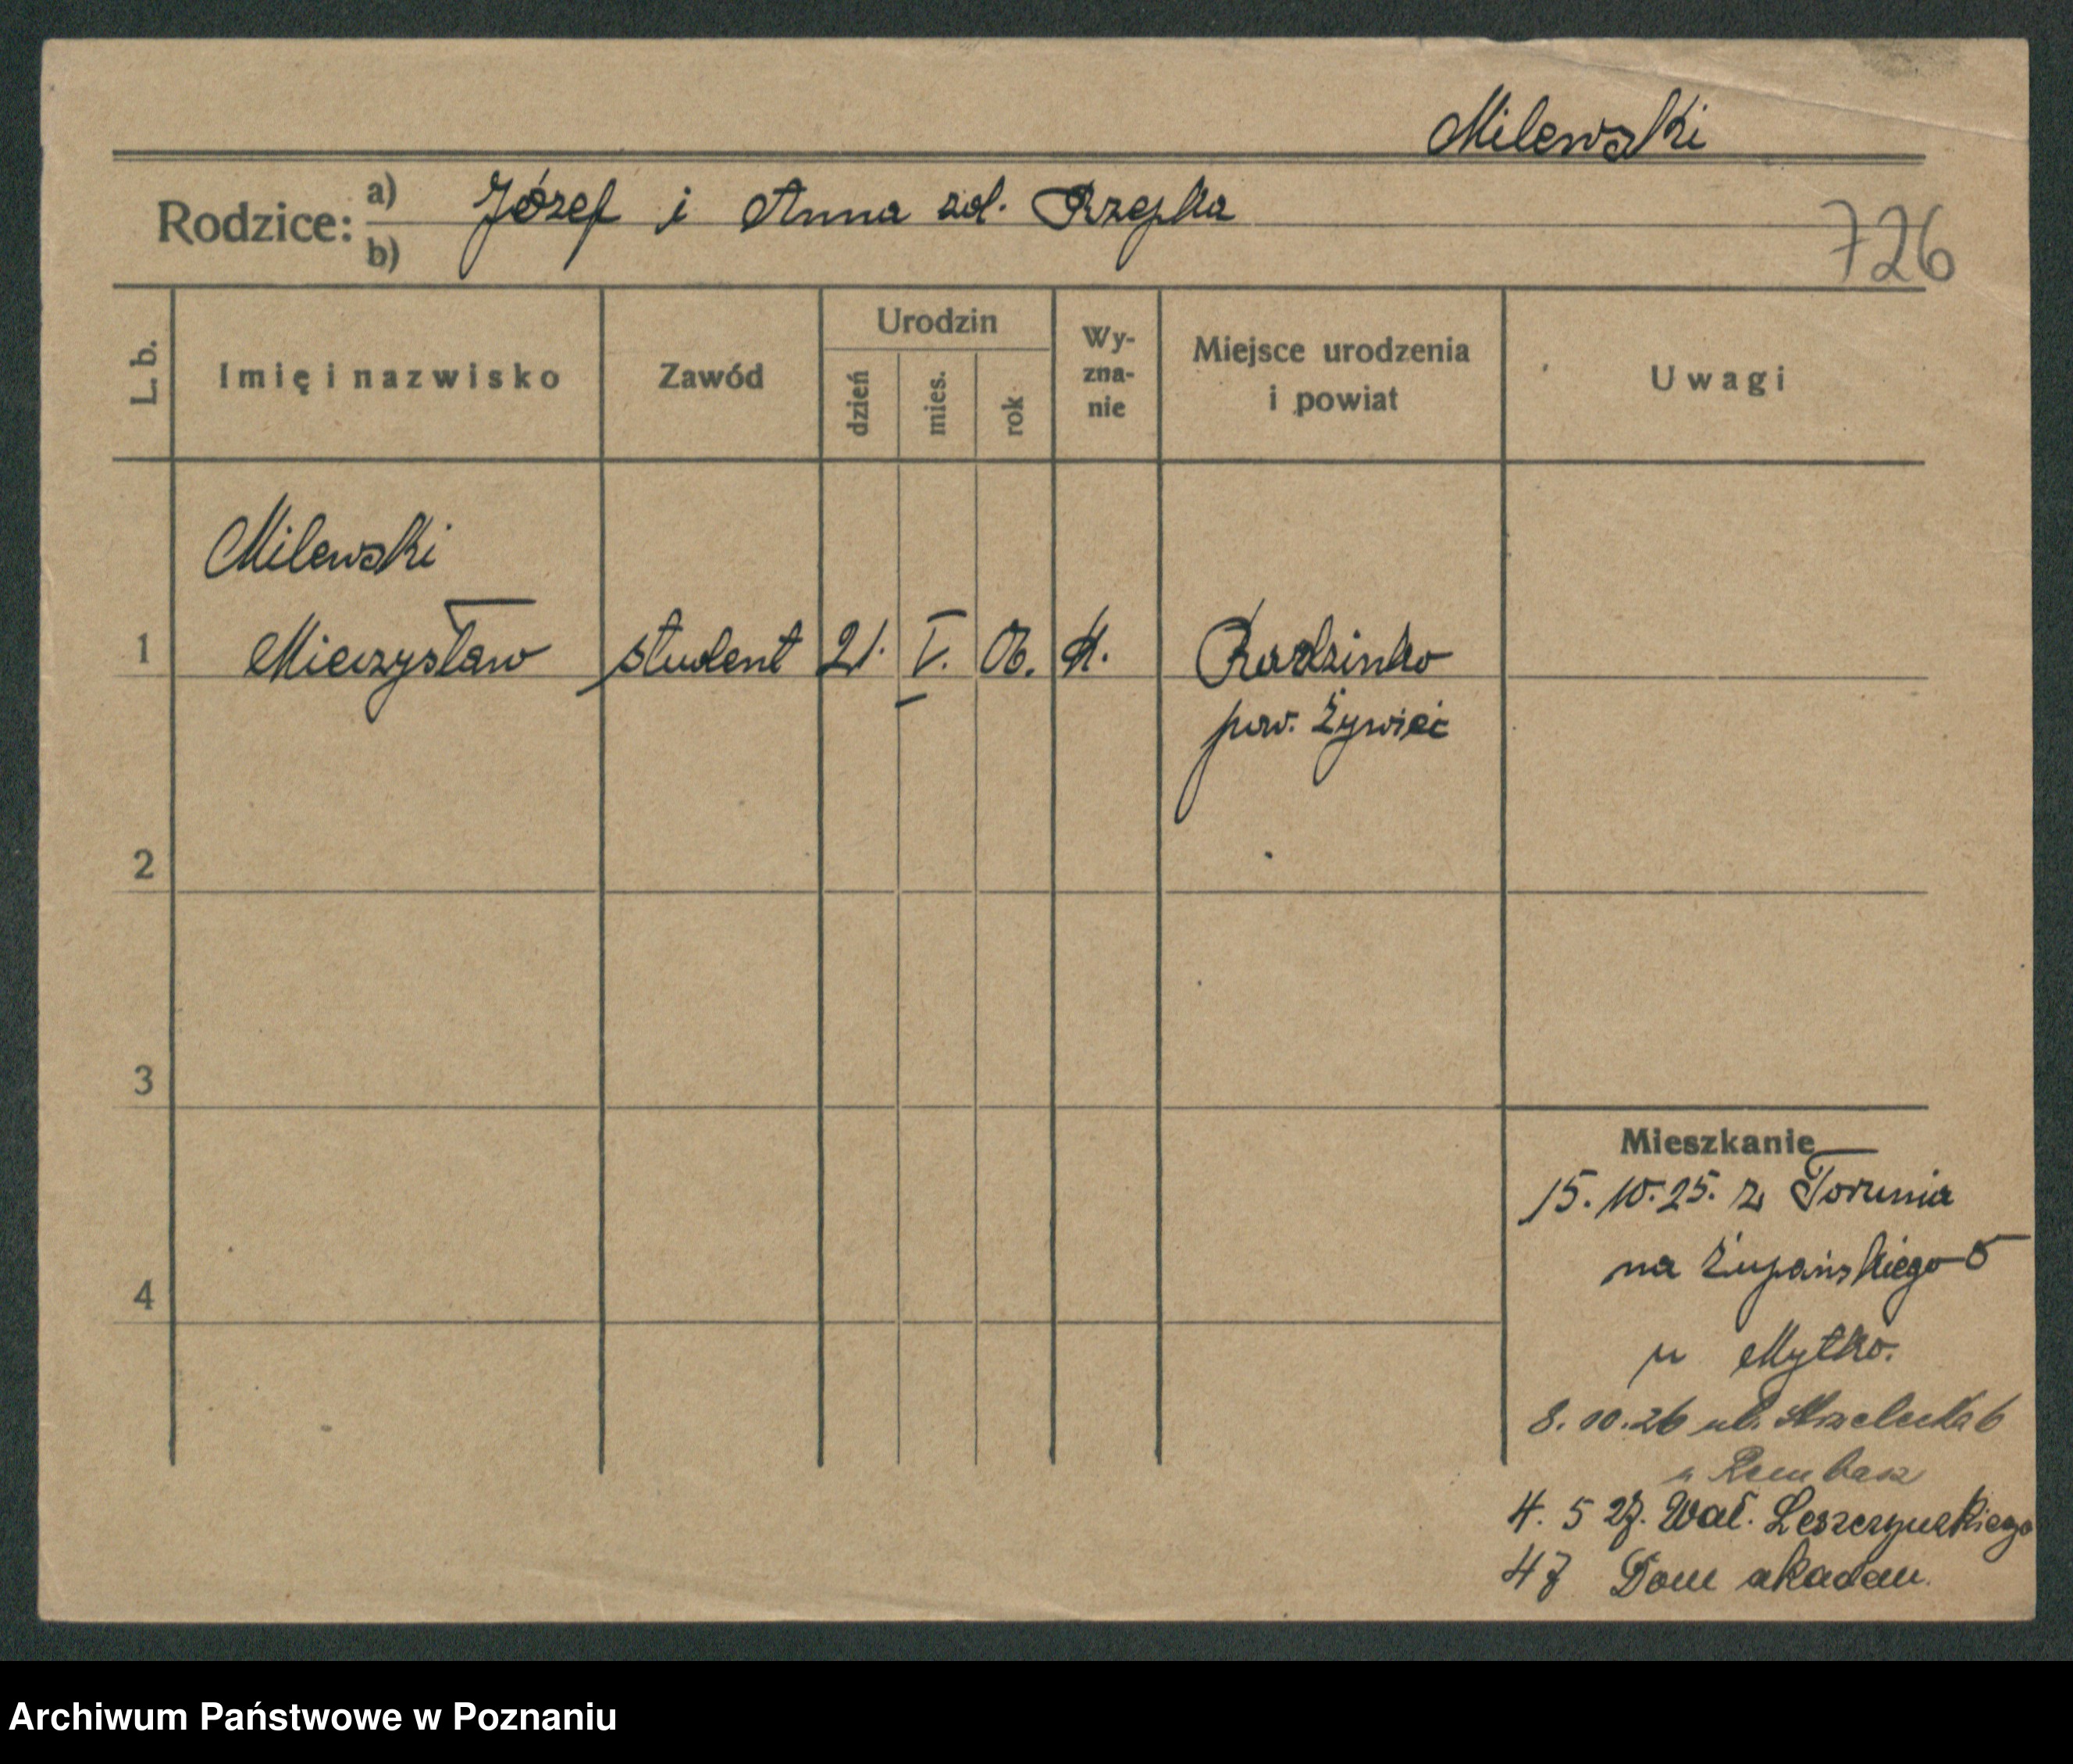 Milewski
Rodzice: a) Józef i Anna zd. Rzepka
b)
726
L. b.
Imię i nazwisko
Zawód
Urodzin
dzień
mies.
rok
Wy-
zna-
nie
Miejsce urodzenia
i powiat
Uwagi
Milewski
1 Mieczysław student 21. V. 06. k. Radzinko
pow. Żywiec
2
3
4
Mieszkanie
15.10.25. z Torunia
na Żupańskiego 5
u Mytko.
8.10.26 ul. 6
u
4. 5 27. Wał. Leszczyńskiego
47 Dom akadem.
Archiwum Państwowe w Poznaniu